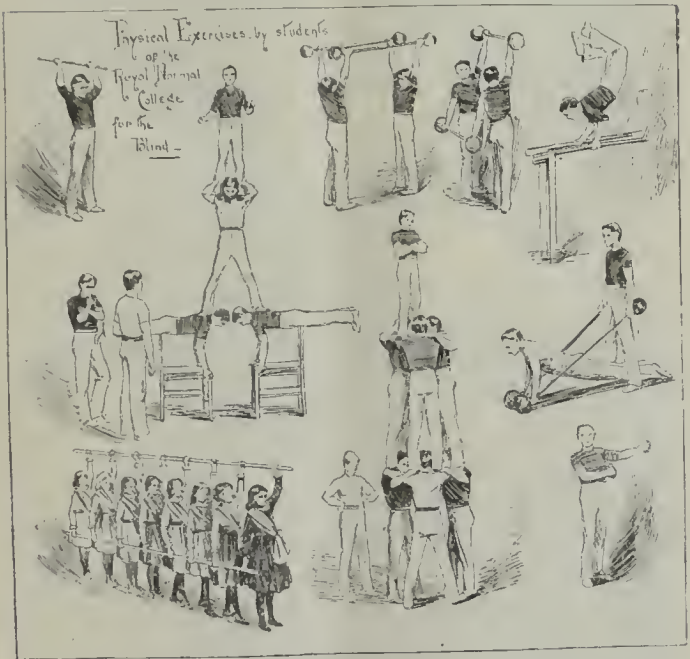 Physical Exercises, by students
of the
Royal Normal
College
for the
Blind -